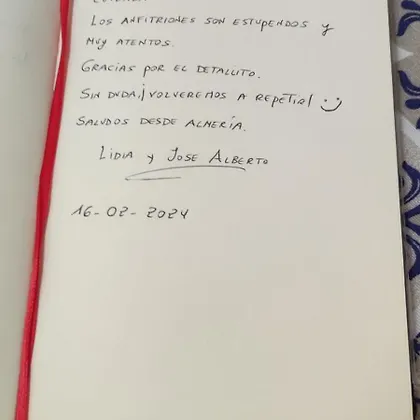 Los anfitriones son estupendos y
muy atentos.
Gracias por el detallito.
Sin duda, ¡volveremos a repetir! :)
Saludos desde Almería.
Lidia y Jose Alberto
16-02-2024